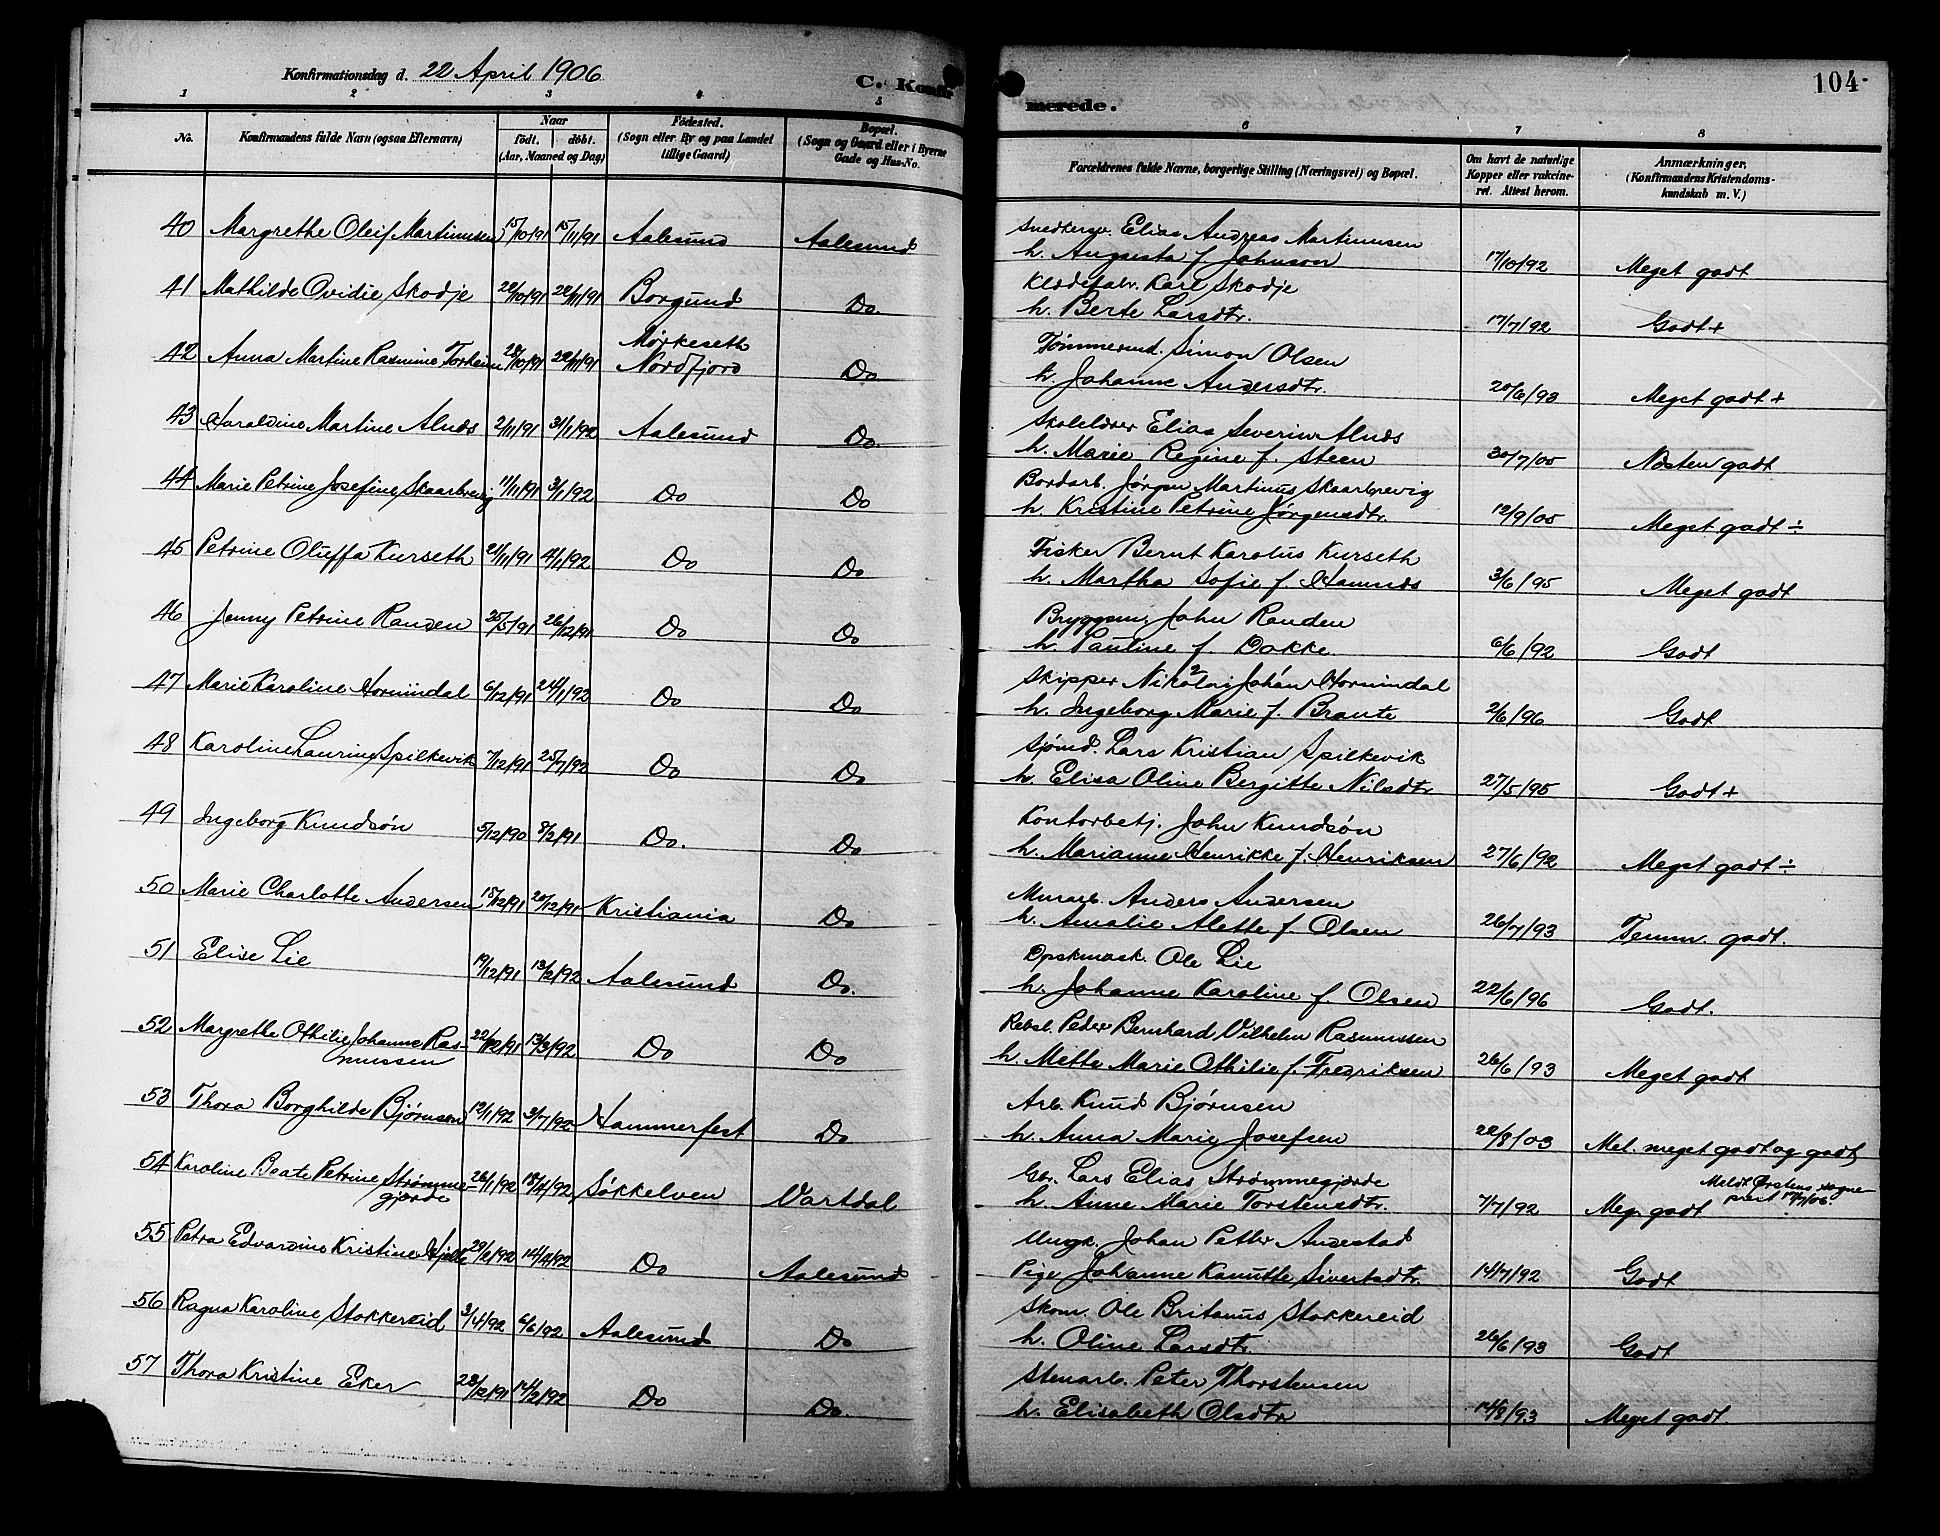 Konfirmationsdag d. 22 April 1906
C. Konfir
merede.
104
1 2 3 4 5 6 7 8
No. | Konfirmandens fulde Navn (ogsaa Efternavn) | Naar født. døbt. (Aar, Maaned og Dag) | Fødested. (Sogn eller By og paa Landet tillige Gaard) | Bopæl. (Sogn og Gaard eller i Byerne Gade og Hus-No. | Forældrenes fulde Navne, borgerlige Stilling (Næringsvei) og Bopæl. | Om havt de naturlige Kopper eller vakcineret. Attest herom. | Anmærkninger. (Konfirmandens Kristendomskundskab m. V.)
40 Margrethe Oleif Martinusen 15/10/91 15/11/91 Aalesund Aalesund Snedkersv. Elias Andreas Martinusen
h. Augusta f. Johnson 17/10/92 Meget godt
41 Mathilde Ovidie Skodje 22/10/91 22/11/91 Borgund Do. Klædefabr. Karl Skodje
h. Berte Larsdtr. 17/7/92 Godt +
42 Anna Martine Rasmine Torheim 28/10/91 22/11/91 Mørkeseth Nordfjord Do Tømmermd. Simon Olsen
h. Johanne Andersdtr. 20/6/93 Meget godt +
43 Haraldine Martine Alnæs 2/11/91 31/1/92 Aalesund Do. Skolelærer Elias Severin Alnæs
h. Marie Regine f. Steen 30/7/00 Næsten godt
44 Marie Petrine Josefine Skaarbrevig 11/11/91 3/1/92 Do Do Bordarb. Jørgen Martinus Skaarbrevig
h. Kristine Petrine Jørgensdtr. 12/9/05 Meget godt ÷
45 Petrine Oluffa Kurseth 21/11/91 4/1/92 Do Do Fisker Bernt Karolus Kurseth
h. Martha Sofie f. Hamnæs 3/6/95 Meget godt
46 Jenny Petrine Randen 25/5/91 26/12/91 Do Do Bryggem. John Randen
h. Pauline f. Dokke 6/6/92 Godt
47 Marie Karoline Hornindal 6/12/91 24/1/92 Do Do Skipper Nikolai Johan Hornindal
h. Ingeborg Marie f. Brante 2/6/96 Godt
48 Karoline Laurine Spilkevik 7/12/91 25/7/92 Do Do Sjømd. Lars Kristian Spilkevik
h. Elisa Oline Bergitte Nilsdtr 27/5/95 Godt +
49 Ingeborg Knudsøn 5/12/90 8/2/91 Do. Do Kontorbetj. John Knudsøn
h. Marianne Henrikke f. Henriksen 27/6/92 Meget godt ÷
50 Marie Charlotte Andersen 15/12/91 20/12/91 Kristiania Do Murarb. Anders Andersen
h. Amalie Alette f. Olsen 26/7/93 Temm. godt.
51 Elise Lie 19/12/91 13/2/92 Aalesund Do. Opskmask. Ole Lie
h. Johanne Karoline f. Olsen 22/6/96 Godt.
52 Margrethe Othilie Johanne Rasmussen 22/12/91 13/3/92 Do Do Rebsl. Peder Bernhard Vilhelm Rasmussen
h. Mette Marie Othilie f. Fredriksen 26/6/93 Meget godt
53 Thora Borghilde Bjørnsen 19/1/92 3/7/92 Hammerfest Do Arb. Knud Bjørnsen
h. Anna Marie Josefsen 22/8/03 Mel. meget godt og godt
54 Karoline Beate Petrine Strømmegjerde 26/1/92 18/4/92 Søkkelven Vartdal Gbr. Lars Elias Strømmegjerde
h. Anne Marie Torstensdtr. 7/7/92 Meg. godt Meldt Ørstens sogneprest 17/7/06.
55 Petra Edvardine Kristine Hjelle 29/2/92 14/4/92 Do Aalesund Ungk. Johan Petter Andestad
Pige Johanne Knutte Siverstadtr. 14/7/92 Godt
56 Ragna Karoline Stokkereid 3/4/92 6/6/92 Aalesund Do Skom. Ole Britanus Stokkereid
h. Oline Larsdtr. 26/6/93 Godt
57 Thora Kristine Eker 28/12/91 14/2/92 Do Do. Stenarb. Peter Thorstensen
h. Elisabeth Olsdtr 14/8/93 Meget godt.